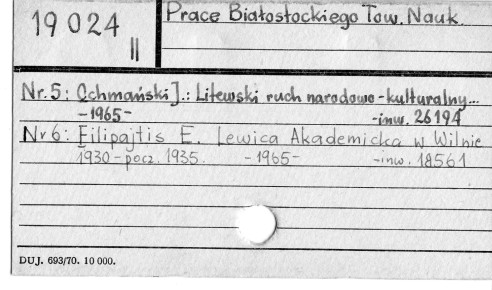 19 024
II
Prace Białostockiego Tow. Nauk.
Nr. 5: Ochmański J.: Litewski ruch narodowo-kulturalny...
-1965- -inw. 26194
Nr 6: Filipajtis E. Lewica Akademicka w Wilnie
1930-pocz. 1935. -1965- -inw. 18561
DUJ. 693/70. 10 000.